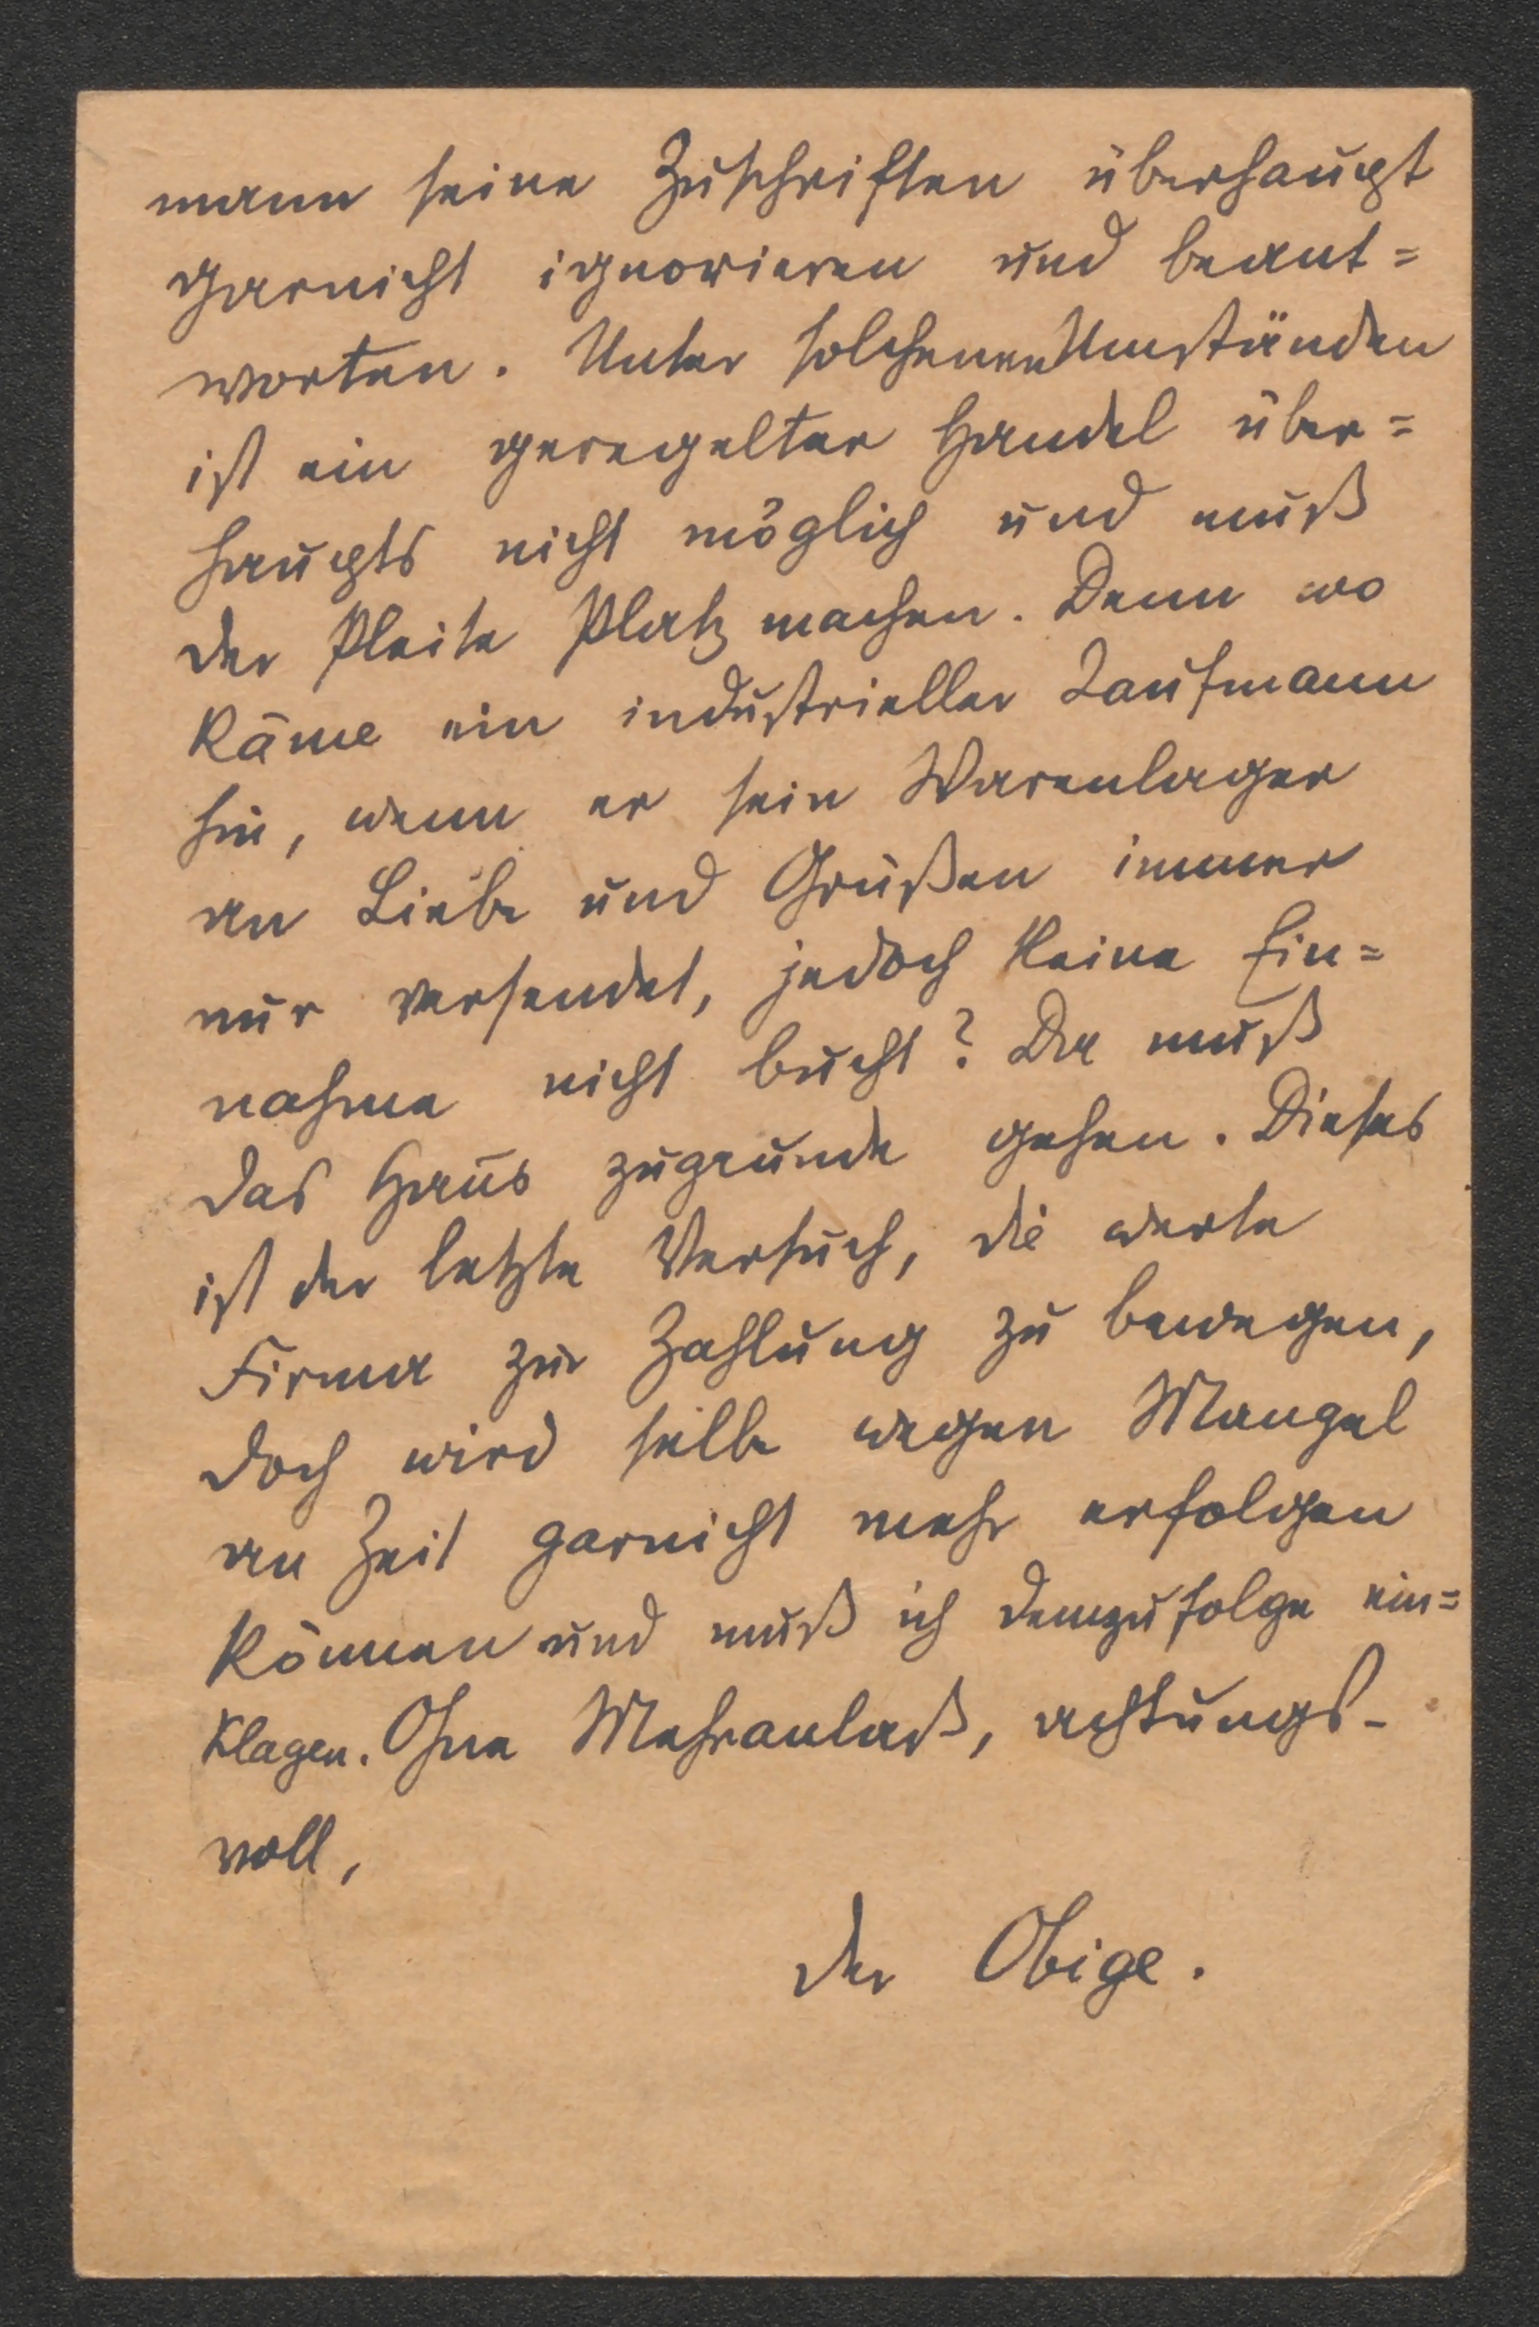 mann seine Zuschriften überhaupt
garnicht ignorieren und beant=
worten. Unter solchenen Umständen
ist ein geregelter Handel über=
haupts nicht möglich und muß
der Pleite Platz machen. Denn wo
käme ein industrieller Kaufmann
hin, wenn er sein Warenlager
an Liebe und Grüßen immer
nur versendet, jedoch keine Ein=
nahme nicht bucht? Da muß
das Haus zugrunde gehen. Dieses
ist der letzte Versuch, die werte
Firma zur Zahlung zu bewegen,
doch wird selbe wegen Mangel
an Zeit garnicht mehr erfolgen
können und muß ich demzufolge ein=
klagen. Ohne Mehranlaß, achtungs-
voll,
der Obige.